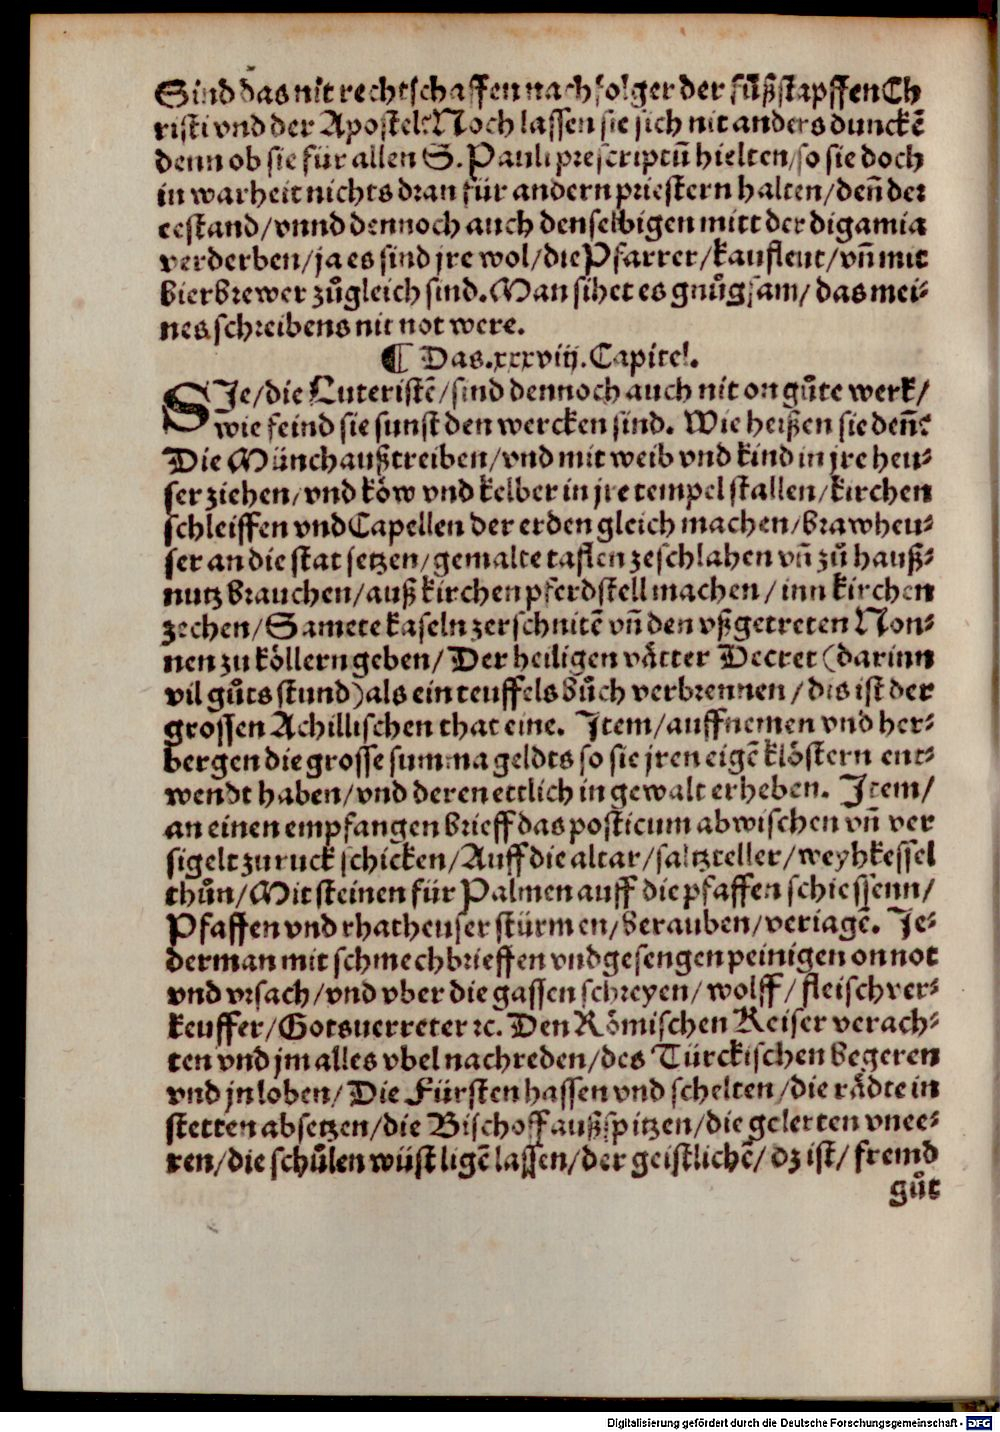 Sind das nit rechtschaffen nachfolger der fůßstapffen Ch
risti vnd der Apostel? Noch lassen sie sich nit anders dunckē
denn ob sie für allen S. Pauli prescriptū hielten/so sie doch
in warheit nichts dran für andern priestern halten/deñ der
eestand/vnnd dennoch auch denselbigen mitt der digamia
verderben/ja es sind jre wol/die Pfarrer/kaufleut/vñ mit
bierbrewer zůgleich sind. Man sihet es gnůgsam/ das mei-
nes schreibens nit not were.
¶ Das.xxxviij.Capitel.
SJe/die Luteristē/sind dennoch auch nit on gůte werk/
wie feind sie sunst den wercken sind. Wie heißen sie deñ?
Die Münch außtreiben/vnd mit weib vnd kind in jre heu-
ser ziehen/vnd köw vnd kelber in jre tempel stallen/kirchen
schleiffen vnd Capellen der erden gleich machen/brawheu-
ser an die stat setzen/gemalte taflen zeschlahen vñ zů hauß-
nutz brauchen/auß kirchen pferdstell machen/ inn kirchen
zechen/Samete kaseln zerschnitē vñ den vßgetreten Non-
nen zu köllern geben/ Der heiligen vätter Decret (darinn
vil gůts stund) als ein teuffels bůch verbrennen/dis ist der
grossen Achillischen that eine. Item/auffnemen vnd her-
bergen die grosse summa geldts so sie jren eigē klöstern ent-
wendt haben/vnd deren ettlich in gewalt erheben. Item/
an einen empfangen brieff das posticum abwischen vñ ver
sigelt zuruck schicken/Auff die altar/saltzteller/weyhkessel
thůn/Mit steinen für Palmen auff die pfaffen schiessenn/
Pfaffen vnd rhatheuser stürmen/berauben/veriagē. Je-
derman mit schmechbrieffen vnd gesengen peinigen on not
vnd vrsach/vnd vber die gassen schreyen/wolff/fleischver-
keuffer/Gotsuerreter ꝛc. Den Römischen Keiser verach-
ten vnd jm alles vbel nachreden/des Türckischen begeren
vnd jn loben/Die Fürsten hassen vnd schelten/die rädte in
stetten absetzen/die Bischoff außspitzen/die gelerten vnee-
ren/die schůlen wüst ligē lassen/der geistlichē/ dz ist/ fremd
gůt
Digitalisierung gefördert durch die Deutsche Forschungsgemeinschaft - DFG